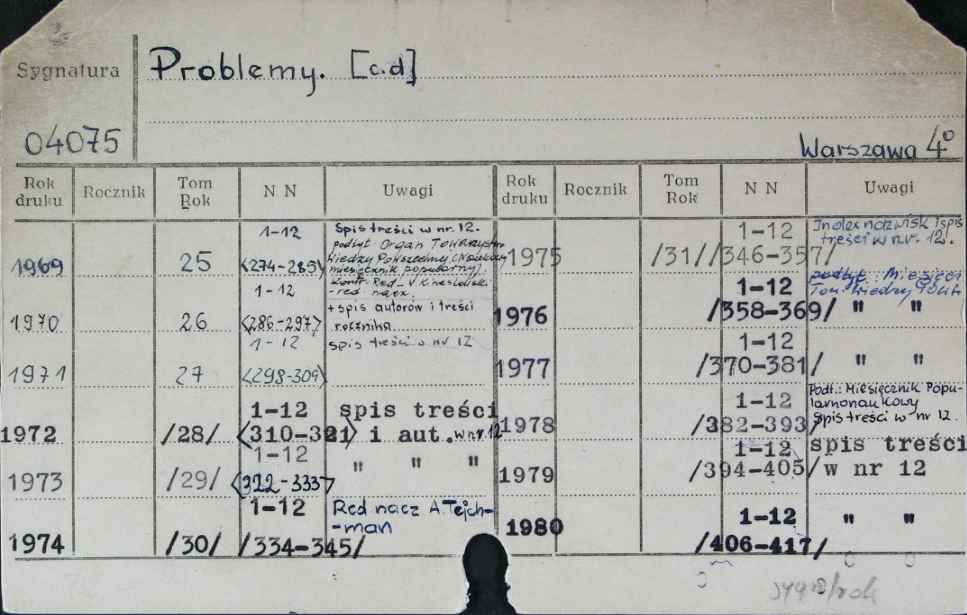 Sygnatura
Problemy. [c.d]
04075
Warszawa 4°
Rok druku Rocznik Tom Rok N N Uwagi Rok druku Rocznik Tom Rok N N Uwagi
1969 25 1-12 <274-285>
Spis treści w nr. 12.
podtyt Organ Towarzystw
Wiedzy Powszechnej (Naukowy
miesięcznik popularny).
1970 26 1-12 <286-297>
Red.
- red nacz.
+ spis autorów i treści
rocznika
1971 27 1-12 <298-309>
spis treści w nr 12
1972 /28/ 1-12 <310-321>
spis treści
i aut. w nr. 12
1973 /29/ 1-12 <322-333> " " "
1974 /30/ 1-12 /334-345/
Red nacz A Tejch-
-man
1975 /31/ 1-12 /346-357/
Index nazwisk i spis
treści w nr. 12.
1976 1-12 /358-369/
podtyt: Miesięcz
Tow. Wiedzy
" "
1977 1-12 /370-381/ " "
1978 1-12 /382-393/
Podt.: Miesięcznik Popu-
larnonaukowy
Spis treści w nr 12.
1979 1-12 /394-405/
spis treści
w nr 12
1980 1-12 /406-417/ " "